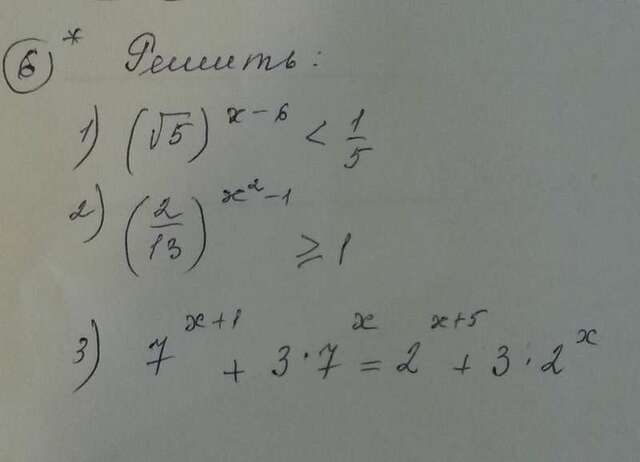 6* Решить:
1) (√5)^(x-6) < 1/5
2) (2/13)^(x²-1) ≥ 1
3) 7^(x+1) + 3·7^x = 2^(x+5) + 3·2^x